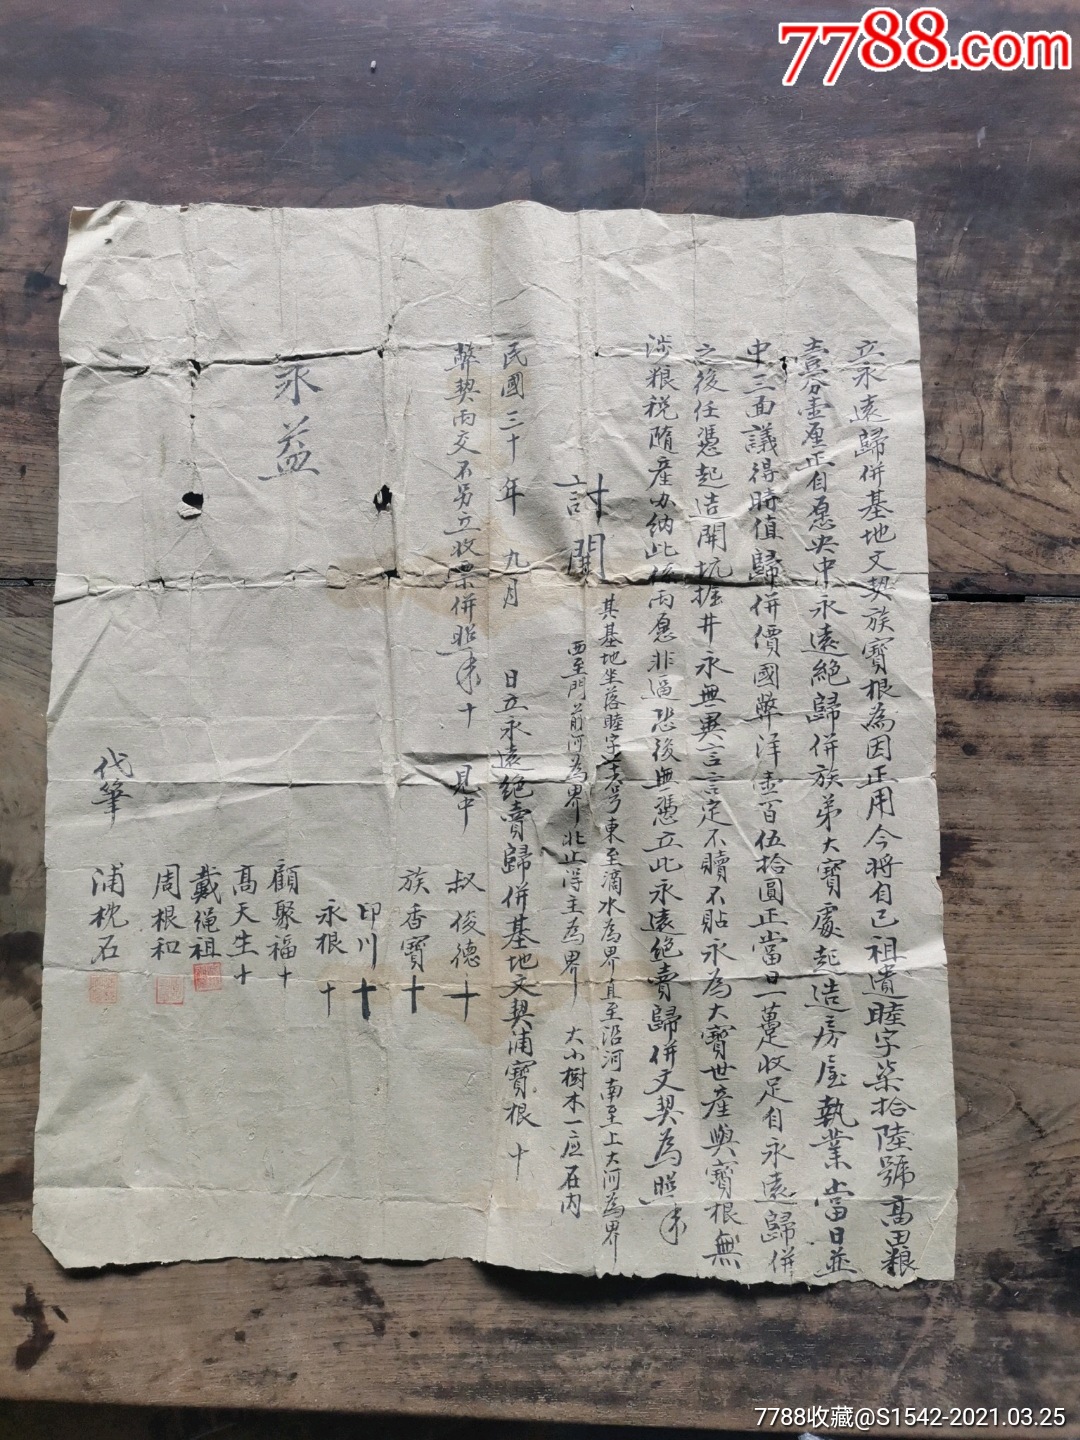 7788.com
立永遠歸併基地文契族寶根為因正用今將自己祖遺睦字柒拾陸號高田粮
壹分壹厘正自愿央中永遠絕歸併族弟大寶處起造房屋執業當日並
中三面議得時值歸併價國幣洋壹百伍拾圓正當日一躉收足自永遠歸併
之後任憑起造開坑掘井永無異言言定不贖不貼永為大寶世產與寶根無
涉粮税隨產办納此係兩愿非逼恐後無憑立此永遠絕賣歸併文契為照
計開
其基地坐落睦字號東至滴水為界直至沿河南至上大河為界
西至門前河為界北止得主為界 大小樹木一应在內
民國三十年 九月 日立永遠絕賣歸併基地文契浦寶根 十
幣契兩交不另立收票併照 十 見中 叔 俊德 十
族 香寶 十
印川 十
永根 十
永益
顧聚福 十
高天生 十
戴绳祖
周根和
代筆 浦枕石
7788收藏@S1542-2021.03.25